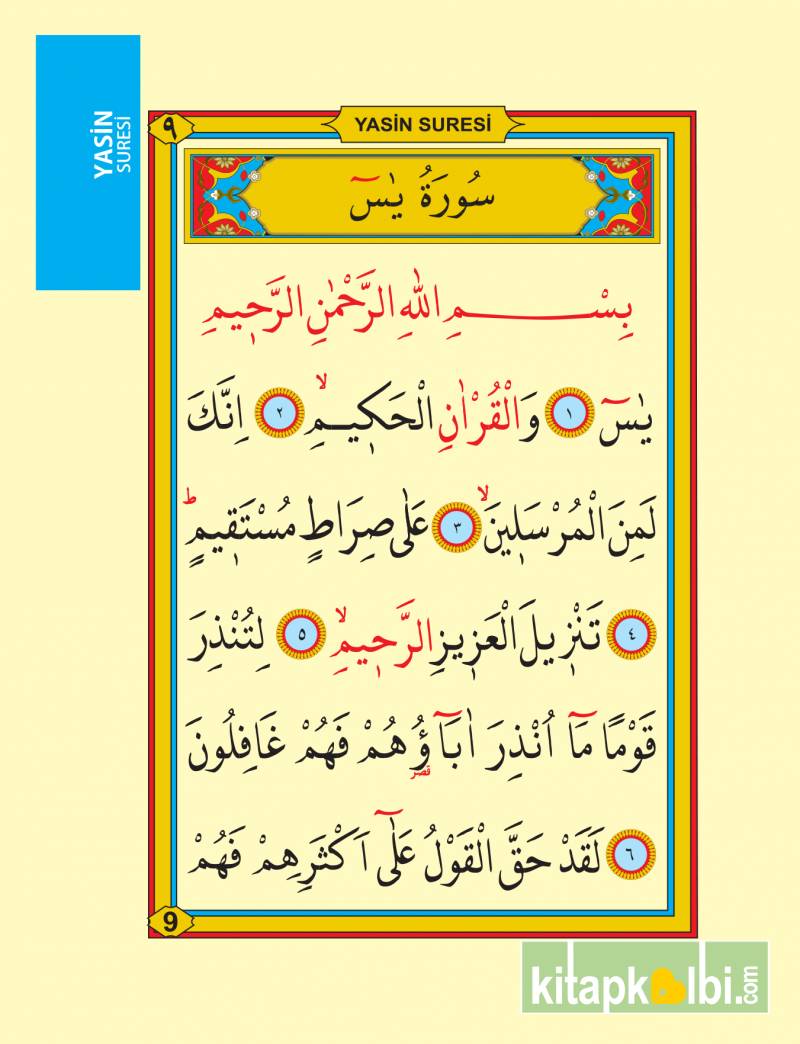 YASİN
SURESİ
٩
YASİN SURESİ
سُورَةُ يٰسٓ
بِسْـــــمِ اللّٰهِ الرَّحْمٰنِ الرَّح۪يمِ
يٰسٓ ١ وَالْقُرْاٰنِ الْحَك۪يـمِۙ ٢ اِنَّكَ
لَمِنَ الْمُرْسَل۪ينَۙ ٣ عَلٰى صِرَاطٍ مُسْتَق۪يمٍۜ
٤ تَنْز۪يلَ الْعَز۪يزِ الرَّح۪يمِۙ ٥ لِتُنْذِرَ
قَوْمًا مَٓا اُنْذِرَ اٰبَٓاؤُ۬هُمْ فَهُمْ غَافِلُونَ
قصر
٦ لَقَدْ حَقَّ الْقَوْلُ عَلٰٓى اَكْثَرِهِمْ فَهُمْ
9
kitapkalbi.com